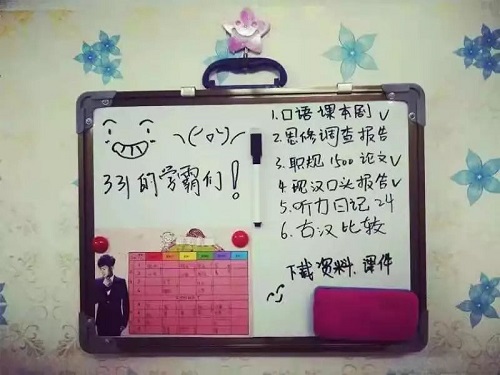 ヽ(ˊoˋ)ノ
331的学霸们!
1.口语课本剧✓
2.思修调查报告
3.职规1500论文✓
4.现汉口头报告✓
5.听力日记24
6.古汉比较
下载资料.课件